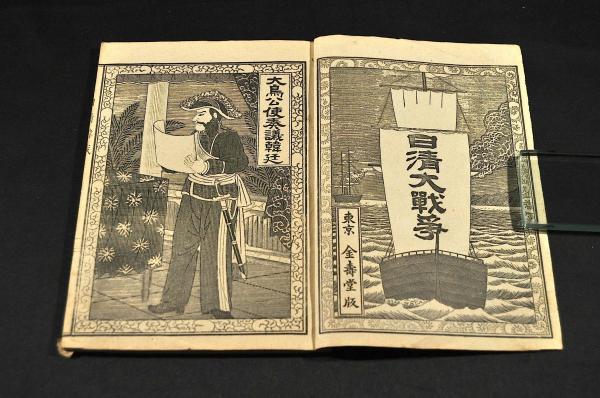 日清大戰爭
東京 金壽堂版
大鳥公使奏議韓廷